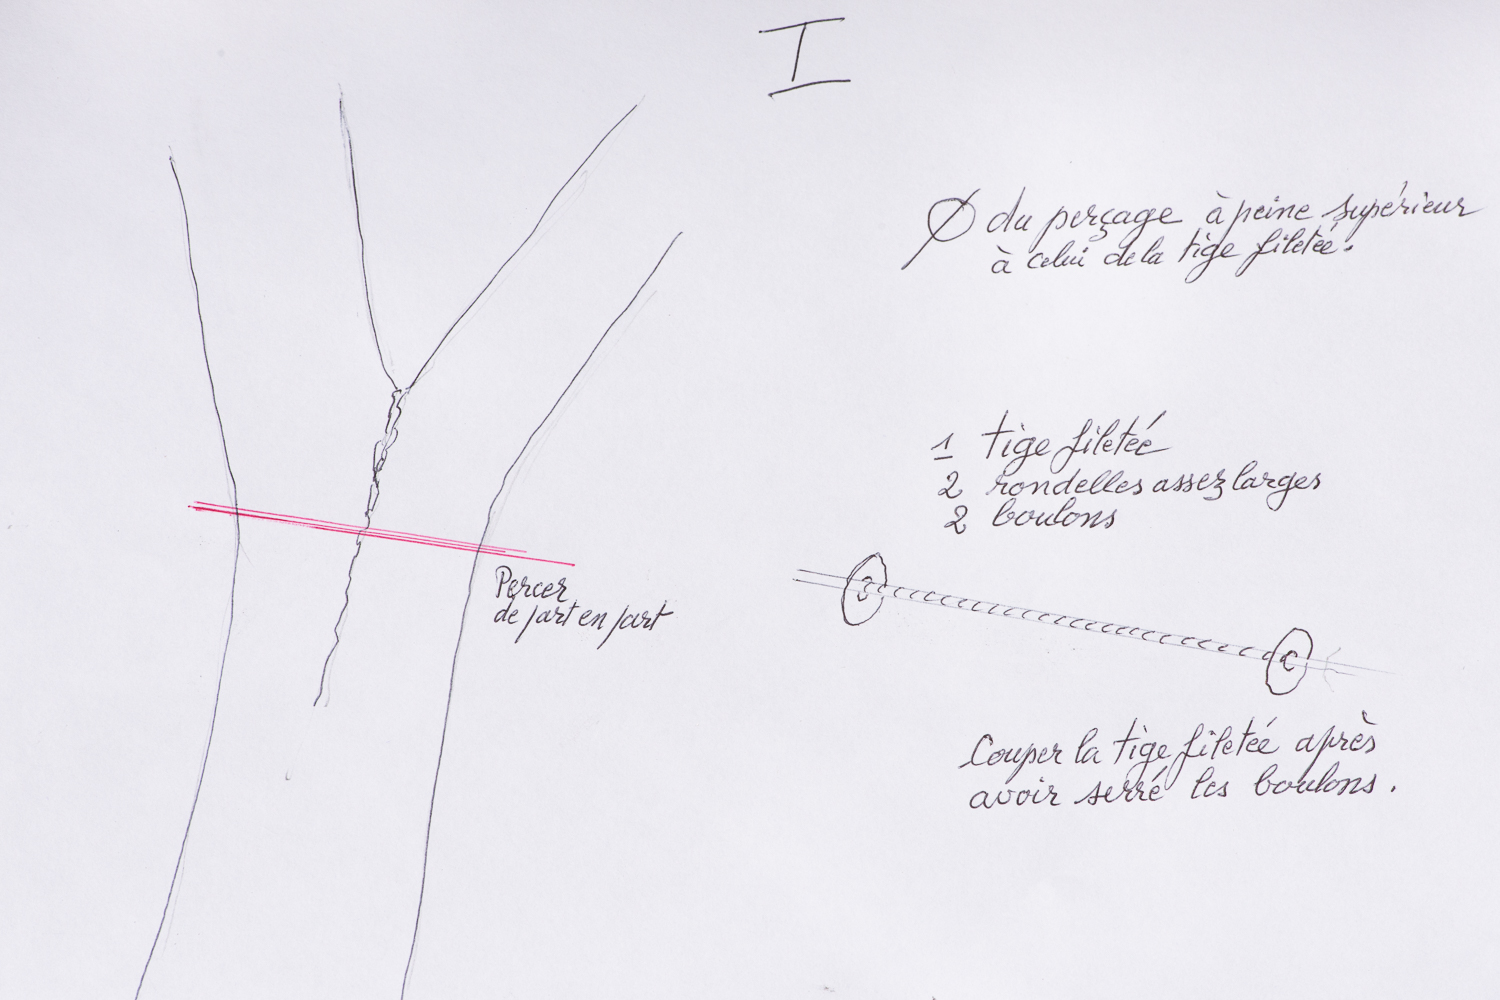 I
Ø du perçage à peine supérieur
à celui de la tige filetée.
1 tige filetée
2 rondelles assez larges
2 boulons
Percer
de part en part
Couper la tige filetée après
avoir serré les boulons.